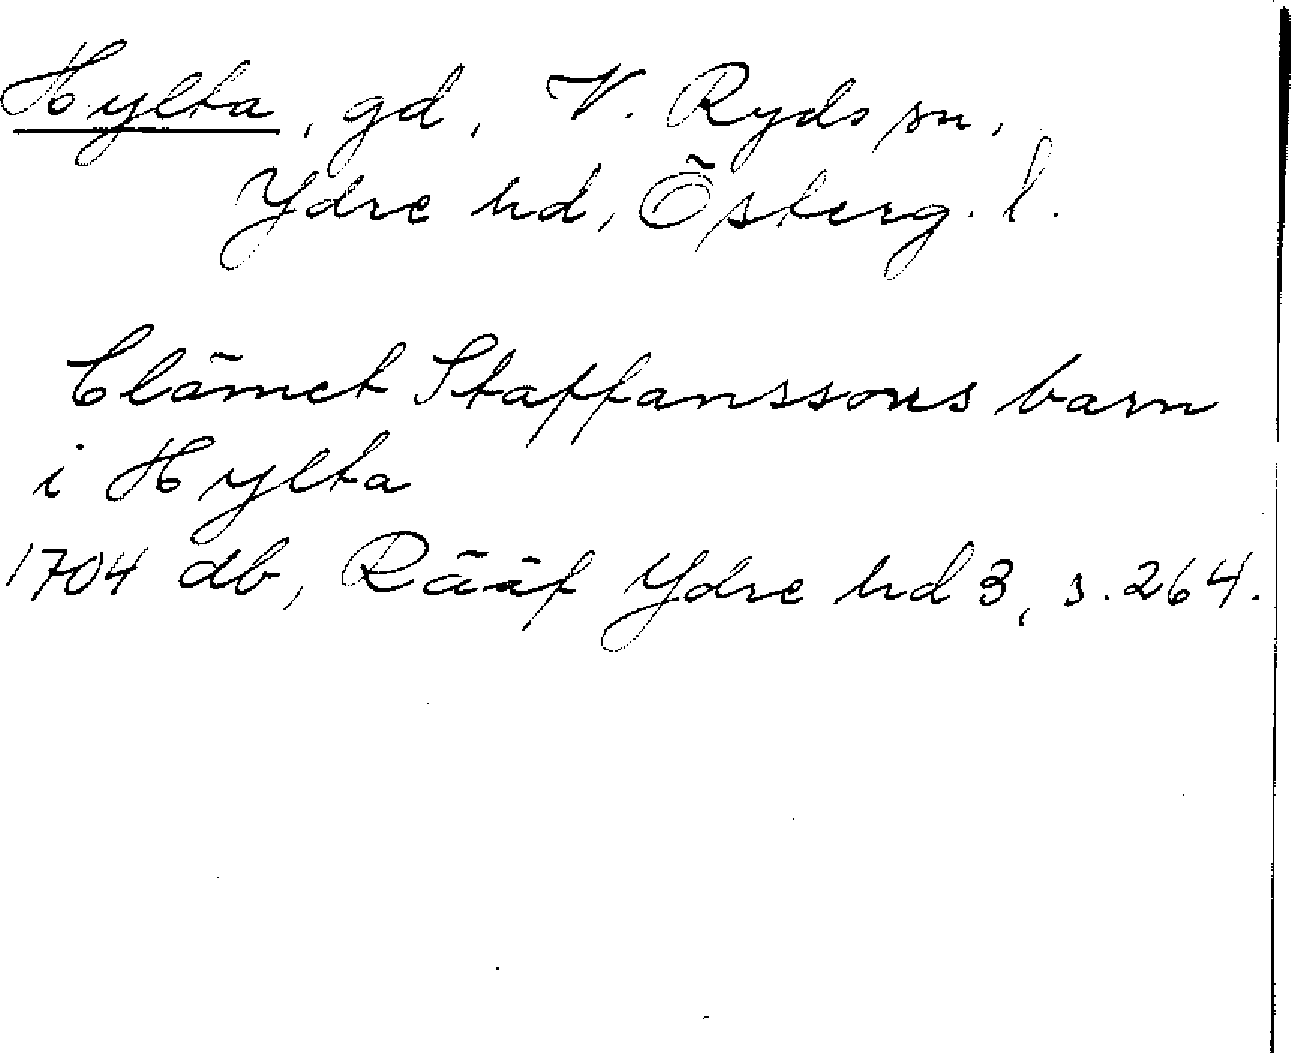 Hylta, gd, V. Ryds sn,
Ydre hd, Österg. l.
Clämet Staffanssons barn
i Hylta
1704 db, Rääf Ydre hd 3, s. 264.